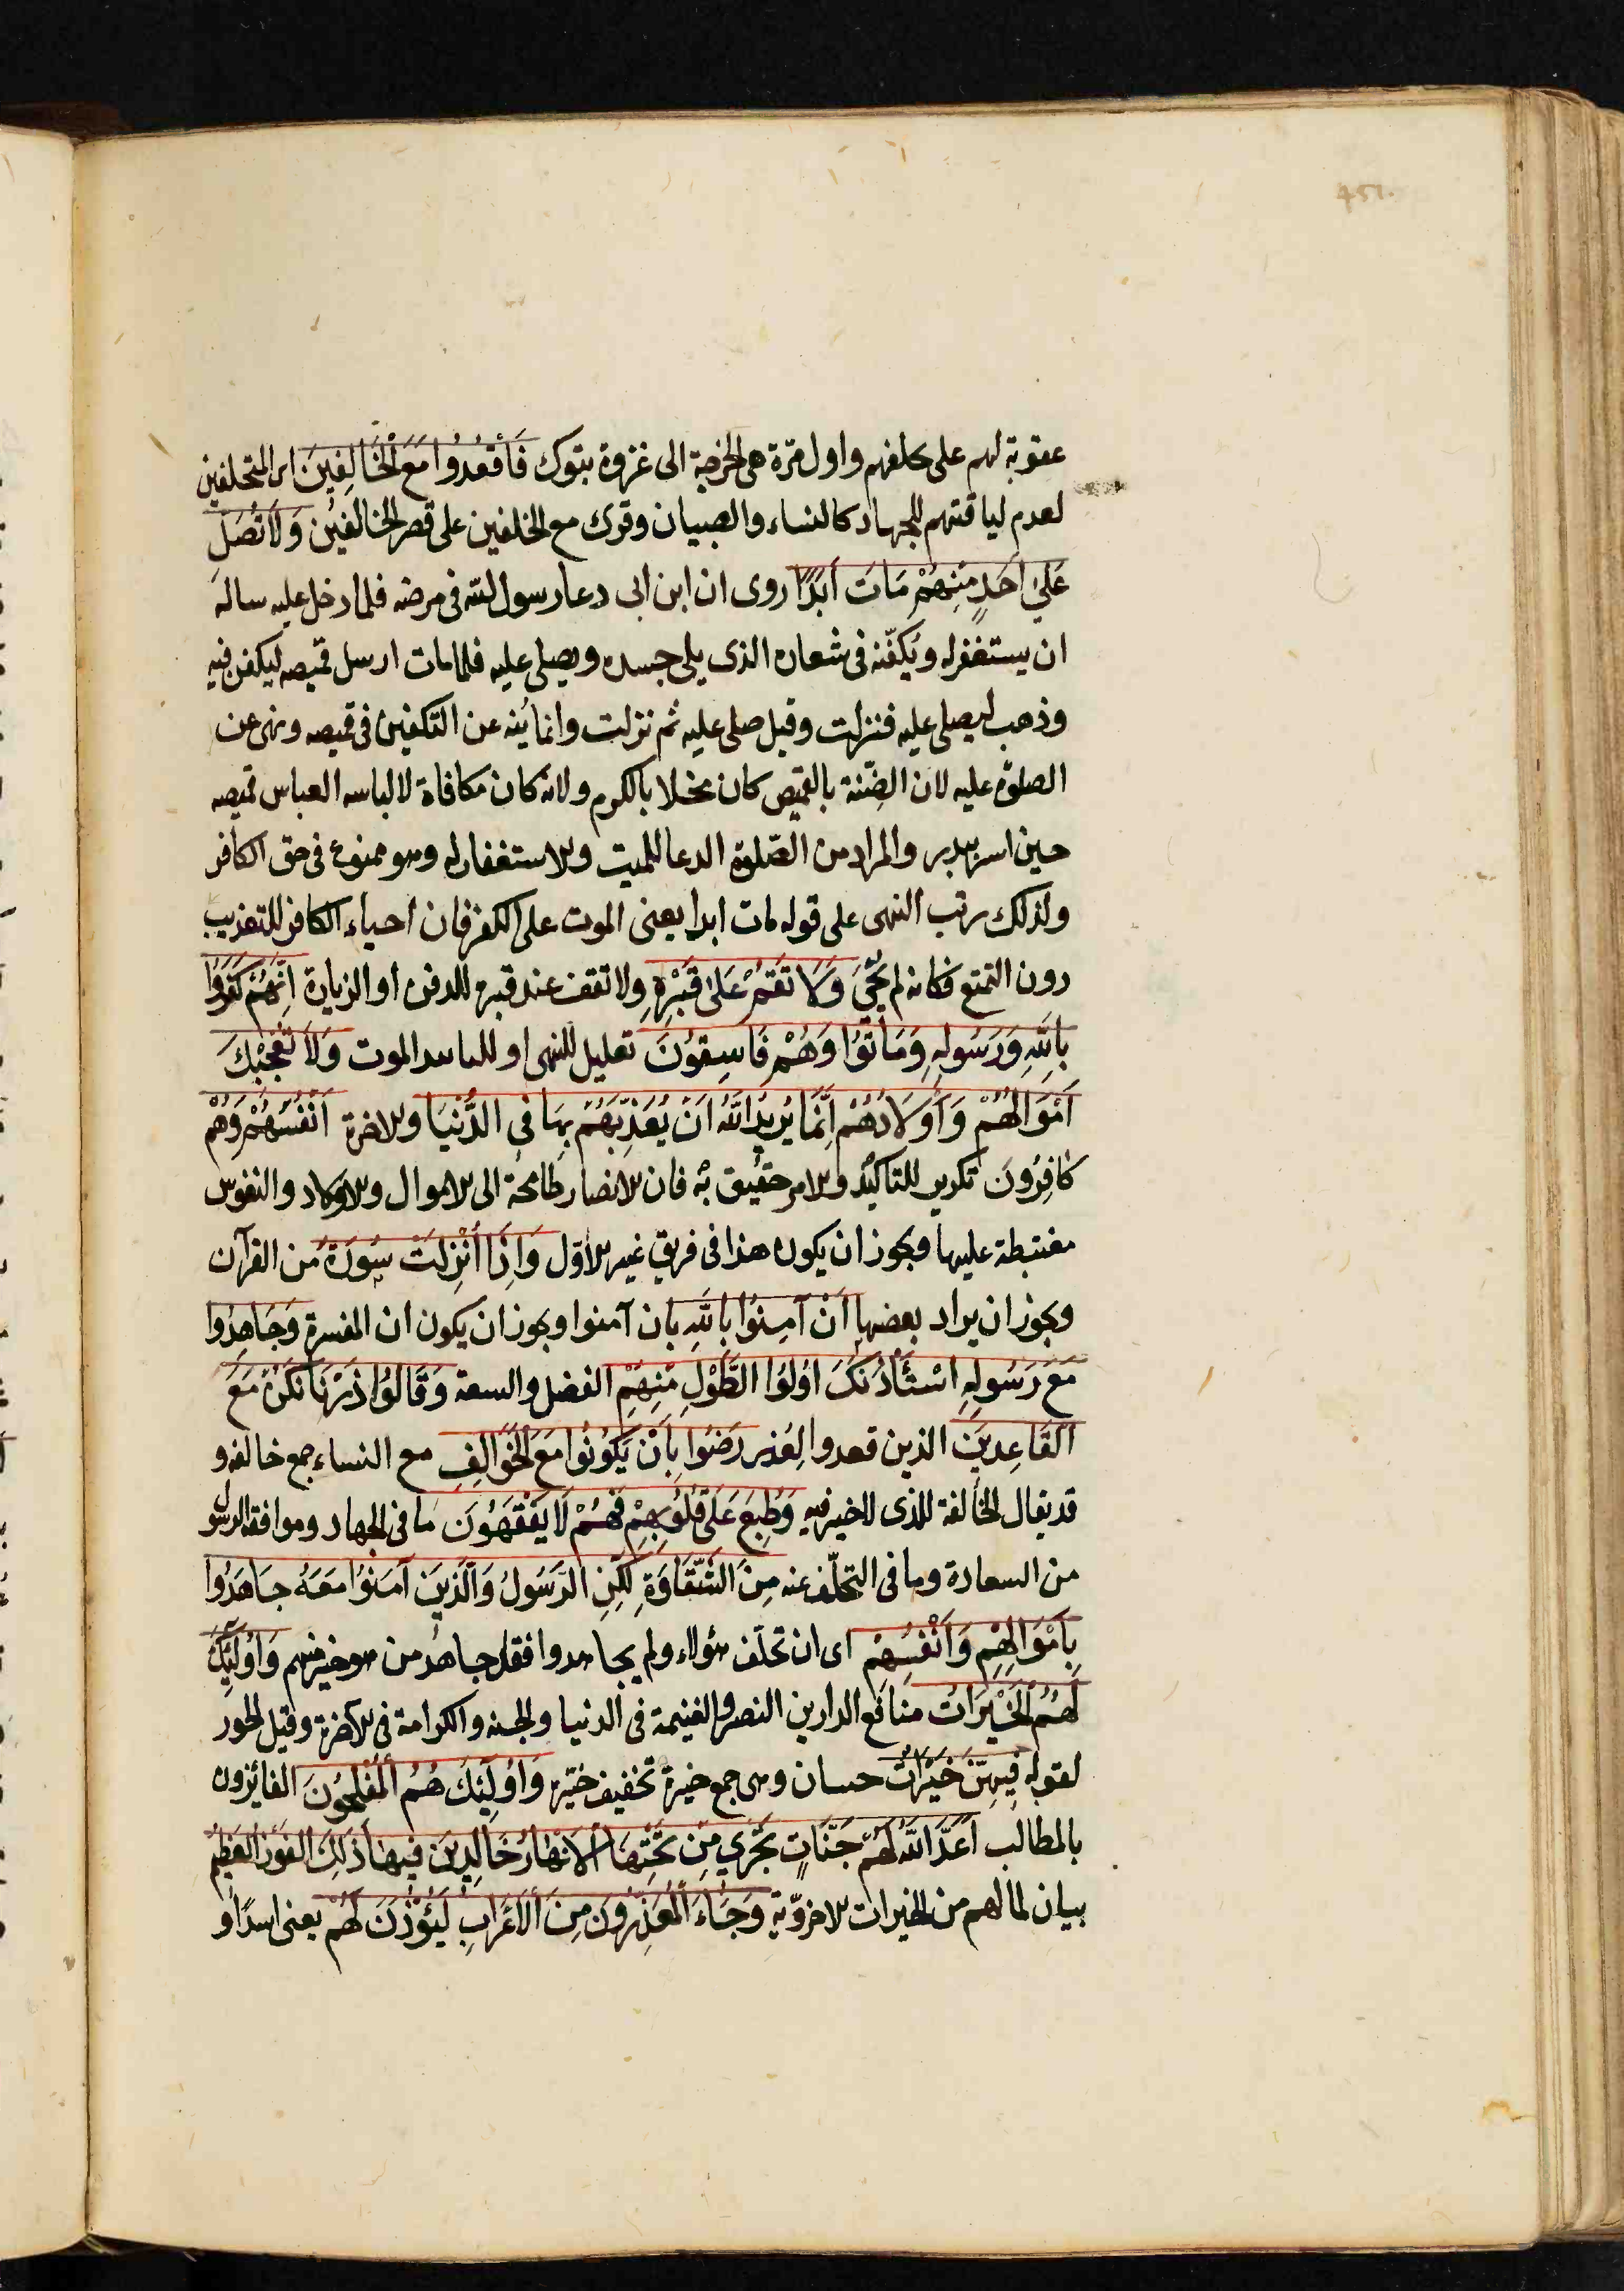 451.
عقوبة لهم على تخلفهم واول مرة هى الخرجة الى غزوة تبوك فَاقْعُدُوا مَعَ الْخَالِفِينَ اى المتخلفين
لعدم لياقتهم للجهاد كالنساء والصبيان وقرئ مع الخلفين على قصر الخالفين وَلَا تُصَلِّ
عَلَىٰ اَحَدٍ مِنْهُمْ مَاتَ اَبَدًا روى ان ابن ابى دعا رسول الله فى مرضه فلما دخل عليه ساله
ان يستغفر له ويُكفّنه فى شعاره الذى يلى جسده ويصلى عليه فلما مات ارسل قميصه ليكفن فيه
وذهب ليصلى عليه فنزلت وقيل صلى عليه ثم نزلت وانما يُنه عن التكفين فى قميصه ونهى عن
الصلوة عليه لان الضِّنّة بالقميص كان مخلا بالكرم ولانه كان مكافاة لالباسه العباس قميصه
حين اسر ببدر والمراد من الصّلوة الدعا للميت والاستغفار له وهو ممنوع فى حق الكافر
ولذلك رتب النهى على قوله مات ابدا يعنى الموت على الكفر فان احياء الكافر للتعذيب
دون التمتع فكانه لم يُحْىَ وَلَا تَقُمْ عَلَىٰ قَبْرِهِ ولا تقف عند قبره للدفن او الزيارة اِنَّهُمْ كَفَرُوا
بِاللّٰهِ وَرَسُولِهِ وَمَاتُوا وَهُمْ فَاسِقُونَ تعليل للنهى او الموت وَلَا تُعْجِبْكَ
اَمْوَالُهُمْ وَاَوْلَادُهُمْ اِنَّمَا يُرِيدُ اللّٰهُ اَنْ يُعَذِّبَهُمْ بِهَا فِى الدُّنْيَا والاخرة اَنْفُسُهُمْ وَهُمْ
كَافِرُونَ تكرير للتاكيد والامر حقيق به فان الابصار طامحة الى الاموال والاولاد والنفوس
مغتبطة عليها ويجوز ان يكون هذا فى فريق غير الاوّل وَاِذَا اُنْزِلَتْ سُورَةٌ من القرآن
ويجوز ان يراد بعضها اَنْ آمِنُوا بِاللّٰهِ بان آمنوا ويجوز ان يكون ان المفسرة وَجَاهِدُوا
مَعَ رَسُولِهِ اسْتَأْذَنَكَ اُولُوا الطَّوْلِ مِنْهُمْ الفضل والسعة وَقَالُوا ذَرْنَا نَكُنْ مَعَ
الْقَاعِدِينَ الذين قعدوا لِعُذر رَضُوا بِاَنْ يَكُونُوا مَعَ الْخَوَالِفِ مع النساء جمع خالفه و
قد يقال الخالفة للذى لا خير فيه وَطُبِعَ عَلَىٰ قُلُوبِهِمْ فَهُمْ لَا يَفْقَهُونَ ما فى الجهاد وموافقة الرسول
من السعادة وما فى التخلّف عنه مِنَ الشَّقَاوَةِ لٰكِنِ الرَّسُولُ وَالَّذِينَ آمَنُوا مَعَهُ جَاهَدُوا
بِاَمْوَالِهِمْ وَاَنْفُسِهِمْ اى ان تخلّف هؤلاء ولم يجاهدوا فقد جاهد من هو خير منهم وَاُولٰئِكَ
لَهُمُ الْخَيْرَاتُ منافع الدارين النصر والغنيمة فى الدنيا والجنه والكرامة فى الآخرة وقيل الحور
لقوله فِيهِنَّ خَيْرَاتٌ حسان وهى جمع خيرة تخفيف خيّرة وَاُولٰئِكَ هُمُ الْمُفْلِحُونَ الفايزون
بالمطالب اَعَدَّ اللّٰهُ لَهُمْ جَنَّاتٍ تَجْرِي مِنْ تَحْتِهَا الْاَنْهَارُ خَالِدِينَ فِيهَا ذٰلِكَ الْفَوْزُ الْعَظِيمُ
بيان لما لهم من الخيرات الاخروّية وَجَاءَ الْمُعَذِّرُونَ مِنَ الْاَعْرَابِ لِيُؤْذَنَ لَهُمْ يعنى اسدًا و